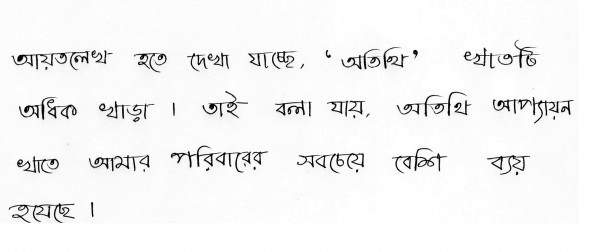 আয়তলেখ হতে দেখা যাচ্ছে, ‘অতিথি’ খাতটি
অধিক খাড়া । তাই বলা যায়, অতিথি আপ্যায়ন
খাতে আমার পরিবারের সবচেয়ে বেশি ব্যয়
হয়েছে ।